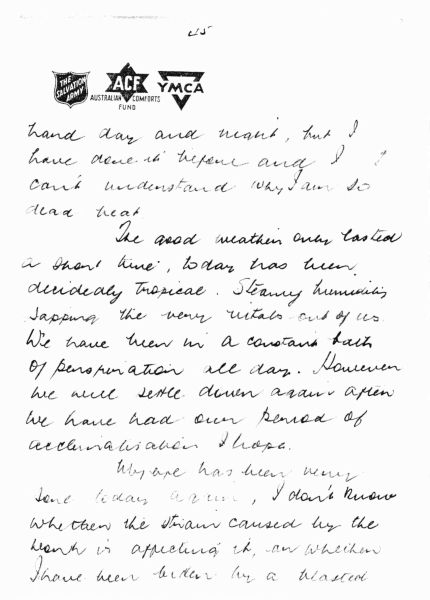 45
THE SALVATION ARMY
ACF
AUSTRALIAN COMFORTS FUND
YMCA
hand day and night, but I
have done it before and I
can't understand why I am so
dead beat.
The good weather only lasted
a short time, today has been
decidedly tropical. Steamy humidity
sapping the very vitals out of us.
We have been in a constant bath
of perspiration all day. However
we will settle down again after
we have had our period of
acclimatisation I hope.
My eye has been very
sore today again, I don't know
whether the strain caused by the
work is affecting it, or whether
I have been bitten by a blasted